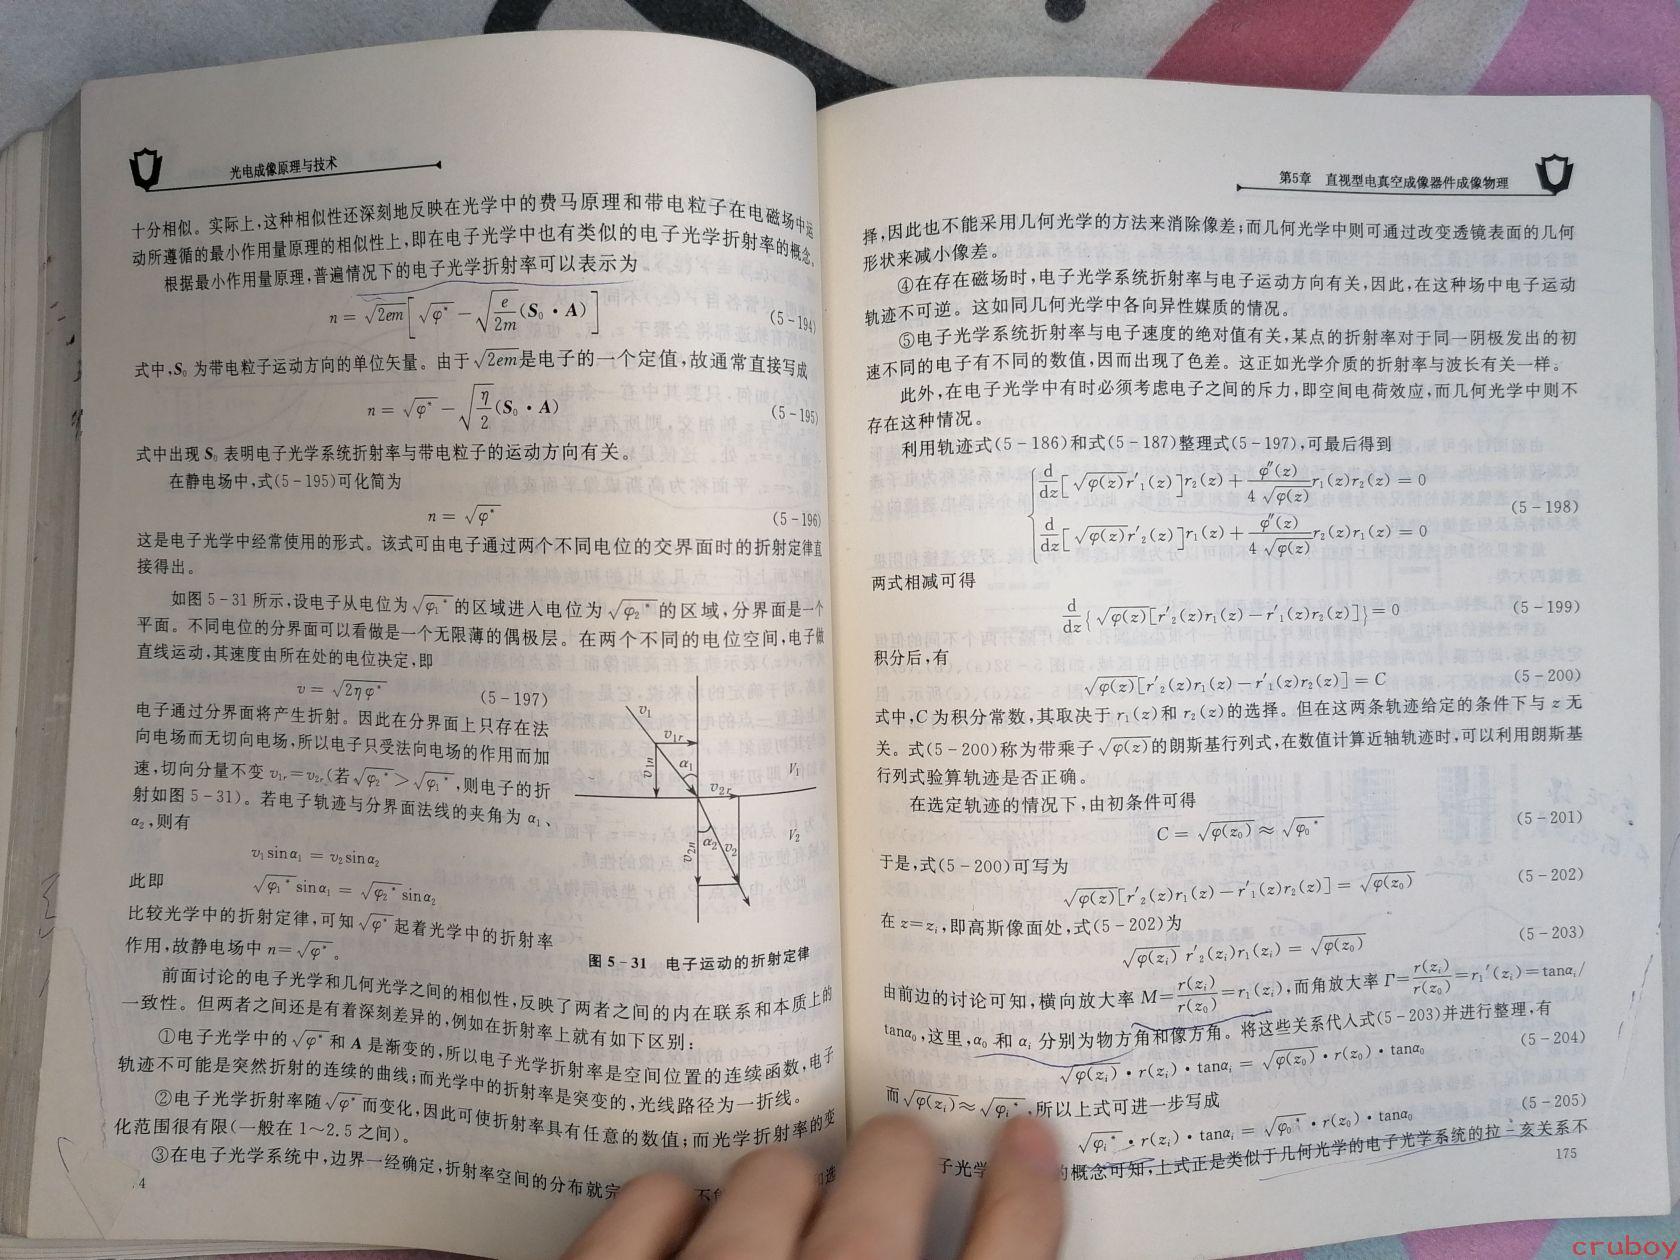 光电成像原理与技术
十分相似。实际上,这种相似性还深刻地反映在光学中的费马原理和带电粒子在电磁场中运
动所遵循的最小作用量原理的相似性上,即在电子光学中也有类似的电子光学折射率的概念。
根据最小作用量原理,普遍情况下的电子光学折射率可以表示为
n = √2em[√φ* - √(e/2m)(S₀·A)] (5-194)
式中,S₀ 为带电粒子运动方向的单位矢量。由于√2em是电子的一个定值,故通常直接写成
n = √φ* - √(η/2)(S₀·A) (5-195)
式中出现 S₀ 表明电子光学系统折射率与带电粒子的运动方向有关。
在静电场中,式(5-195)可化简为
n = √φ* (5-196)
这是电子光学中经常使用的形式。该式可由电子通过两个不同电位的交界面时的折射定律直
接得出。
如图 5-31 所示,设电子从电位为√φ₁*的区域进入电位为√φ₂*的区域,分界面是一个
平面。不同电位的分界面可以看做是一个无限薄的偶极层。在两个不同的电位空间,电子做
直线运动,其速度由所在处的电位决定,即
v = √2ηφ* (5-197)
电子通过分界面将产生折射。因此在分界面上只存在法
向电场而无切向电场,所以电子只受法向电场的作用而加
速,切向分量不变 v₁r=v₂r(若√φ₂*>√φ₁*,则电子的折
射如图 5-31)。若电子轨迹与分界面法线的夹角为 α₁、
α₂,则有
v₁sinα₁ = v₂sinα₂
此即 √φ₁* sinα₁ = √φ₂* sinα₂
比较光学中的折射定律,可知√φ*起着光学中的折射率
作用,故静电场中 n=√φ*。
v₁
v₁r
v₁n
α₁
v₂r
V₁
V₂
v₂n
α₂
v₂
图 5-31 电子运动的折射定律
前面讨论的电子光学和几何光学之间的相似性,反映了两者之间的内在联系和本质上的
一致性。但两者之间还是有着深刻差异的,例如在折射率上就有如下区别:
①电子光学中的√φ*和 A 是渐变的,所以电子光学折射率是空间位置的连续函数,电子
轨迹不可能是突然折射的连续的曲线;而光学中的折射率是突变的,光线路径为一折线。
②电子光学折射率随√φ*而变化,因此可使折射率具有任意的数值;而光学折射率的变
化范围很有限(一般在 1~2.5 之间)。
③在电子光学系统中,边界一经确定,折射率空间的分布就完
4
第5章 直视型电真空成像器件成像物理
择,因此也不能采用几何光学的方法来消除像差;而几何光学中则可通过改变透镜表面的几何
形状来减小像差。
④在存在磁场时,电子光学系统折射率与电子运动方向有关,因此,在这种场中电子运动
轨迹不可逆。这如同几何光学中各向异性媒质的情况。
⑤电子光学系统折射率与电子速度的绝对值有关,某点的折射率对于同一阴极发出的初
速不同的电子有不同的数值,因而出现了色差。这正如光学介质的折射率与波长有关一样。
此外,在电子光学中有时必须考虑电子之间的斥力,即空间电荷效应,而几何光学中则不
存在这种情况。
利用轨迹式(5-186)和式(5-187)整理式(5-197),可最后得到
d/dz[√φ(z)r′₁(z)]r₂(z)+φ″(z)/4√φ(z) r₁(z)r₂(z) = 0
(5-198)
d/dz[√φ(z)r′₂(z)]r₁(z)+φ″(z)/4√φ(z) r₂(z)r₁(z) = 0
两式相减可得
d/dz{√φ(z)[r′₂(z)r₁(z)-r′₁(z)r₂(z)]}=0 (5-199)
积分后,有
√φ(z)[r′₂(z)r₁(z)-r′₁(z)r₂(z)] = C (5-200)
式中,C为积分常数,其取决于 r₁(z)和 r₂(z)的选择。但在这两条轨迹给定的条件下与 z 无
关。式(5-200)称为带乘子√φ(z)的朗斯基行列式,在数值计算近轴轨迹时,可以利用朗斯基
行列式验算轨迹是否正确。
在选定轨迹的情况下,由初条件可得
C = √φ(z₀) ≈ √φ₀* (5-201)
于是,式(5-200)可写为
√φ(z)[r′₂(z)r₁(z)-r′₁(z)r₂(z)] = √φ(z₀) (5-202)
在 z=zᵢ,即高斯像面处,式(5-202)为
√φ(zᵢ) r′₂(zᵢ)r₁(zᵢ) = √φ(z₀) (5-203)
由前边的讨论可知,横向放大率 M=r(zᵢ)/r(z₀)=r₁(zᵢ),而角放大率 Γ=r(zᵢ)/r(z₀)=r₁′(zᵢ)=tanαᵢ/
tanα₀,这里,α₀ 和 αᵢ 分别为物方角和像方角。将这些关系代入式(5-203)并进行整理,有
√φ(zᵢ)·r(zᵢ)·tanαᵢ = √φ(z₀)·r(z₀)·tanα₀ (5-204)
而√φ(zᵢ)≈√φᵢ*,所以上式可进一步写成
√φᵢ*·r(zᵢ)·tanαᵢ = √φ₀*·r(z₀)·tanα₀ (5-205)
子光学 的概念可知,上式正是类似于几何光学的电子光学系统的拉-亥关系不
175
cruboy